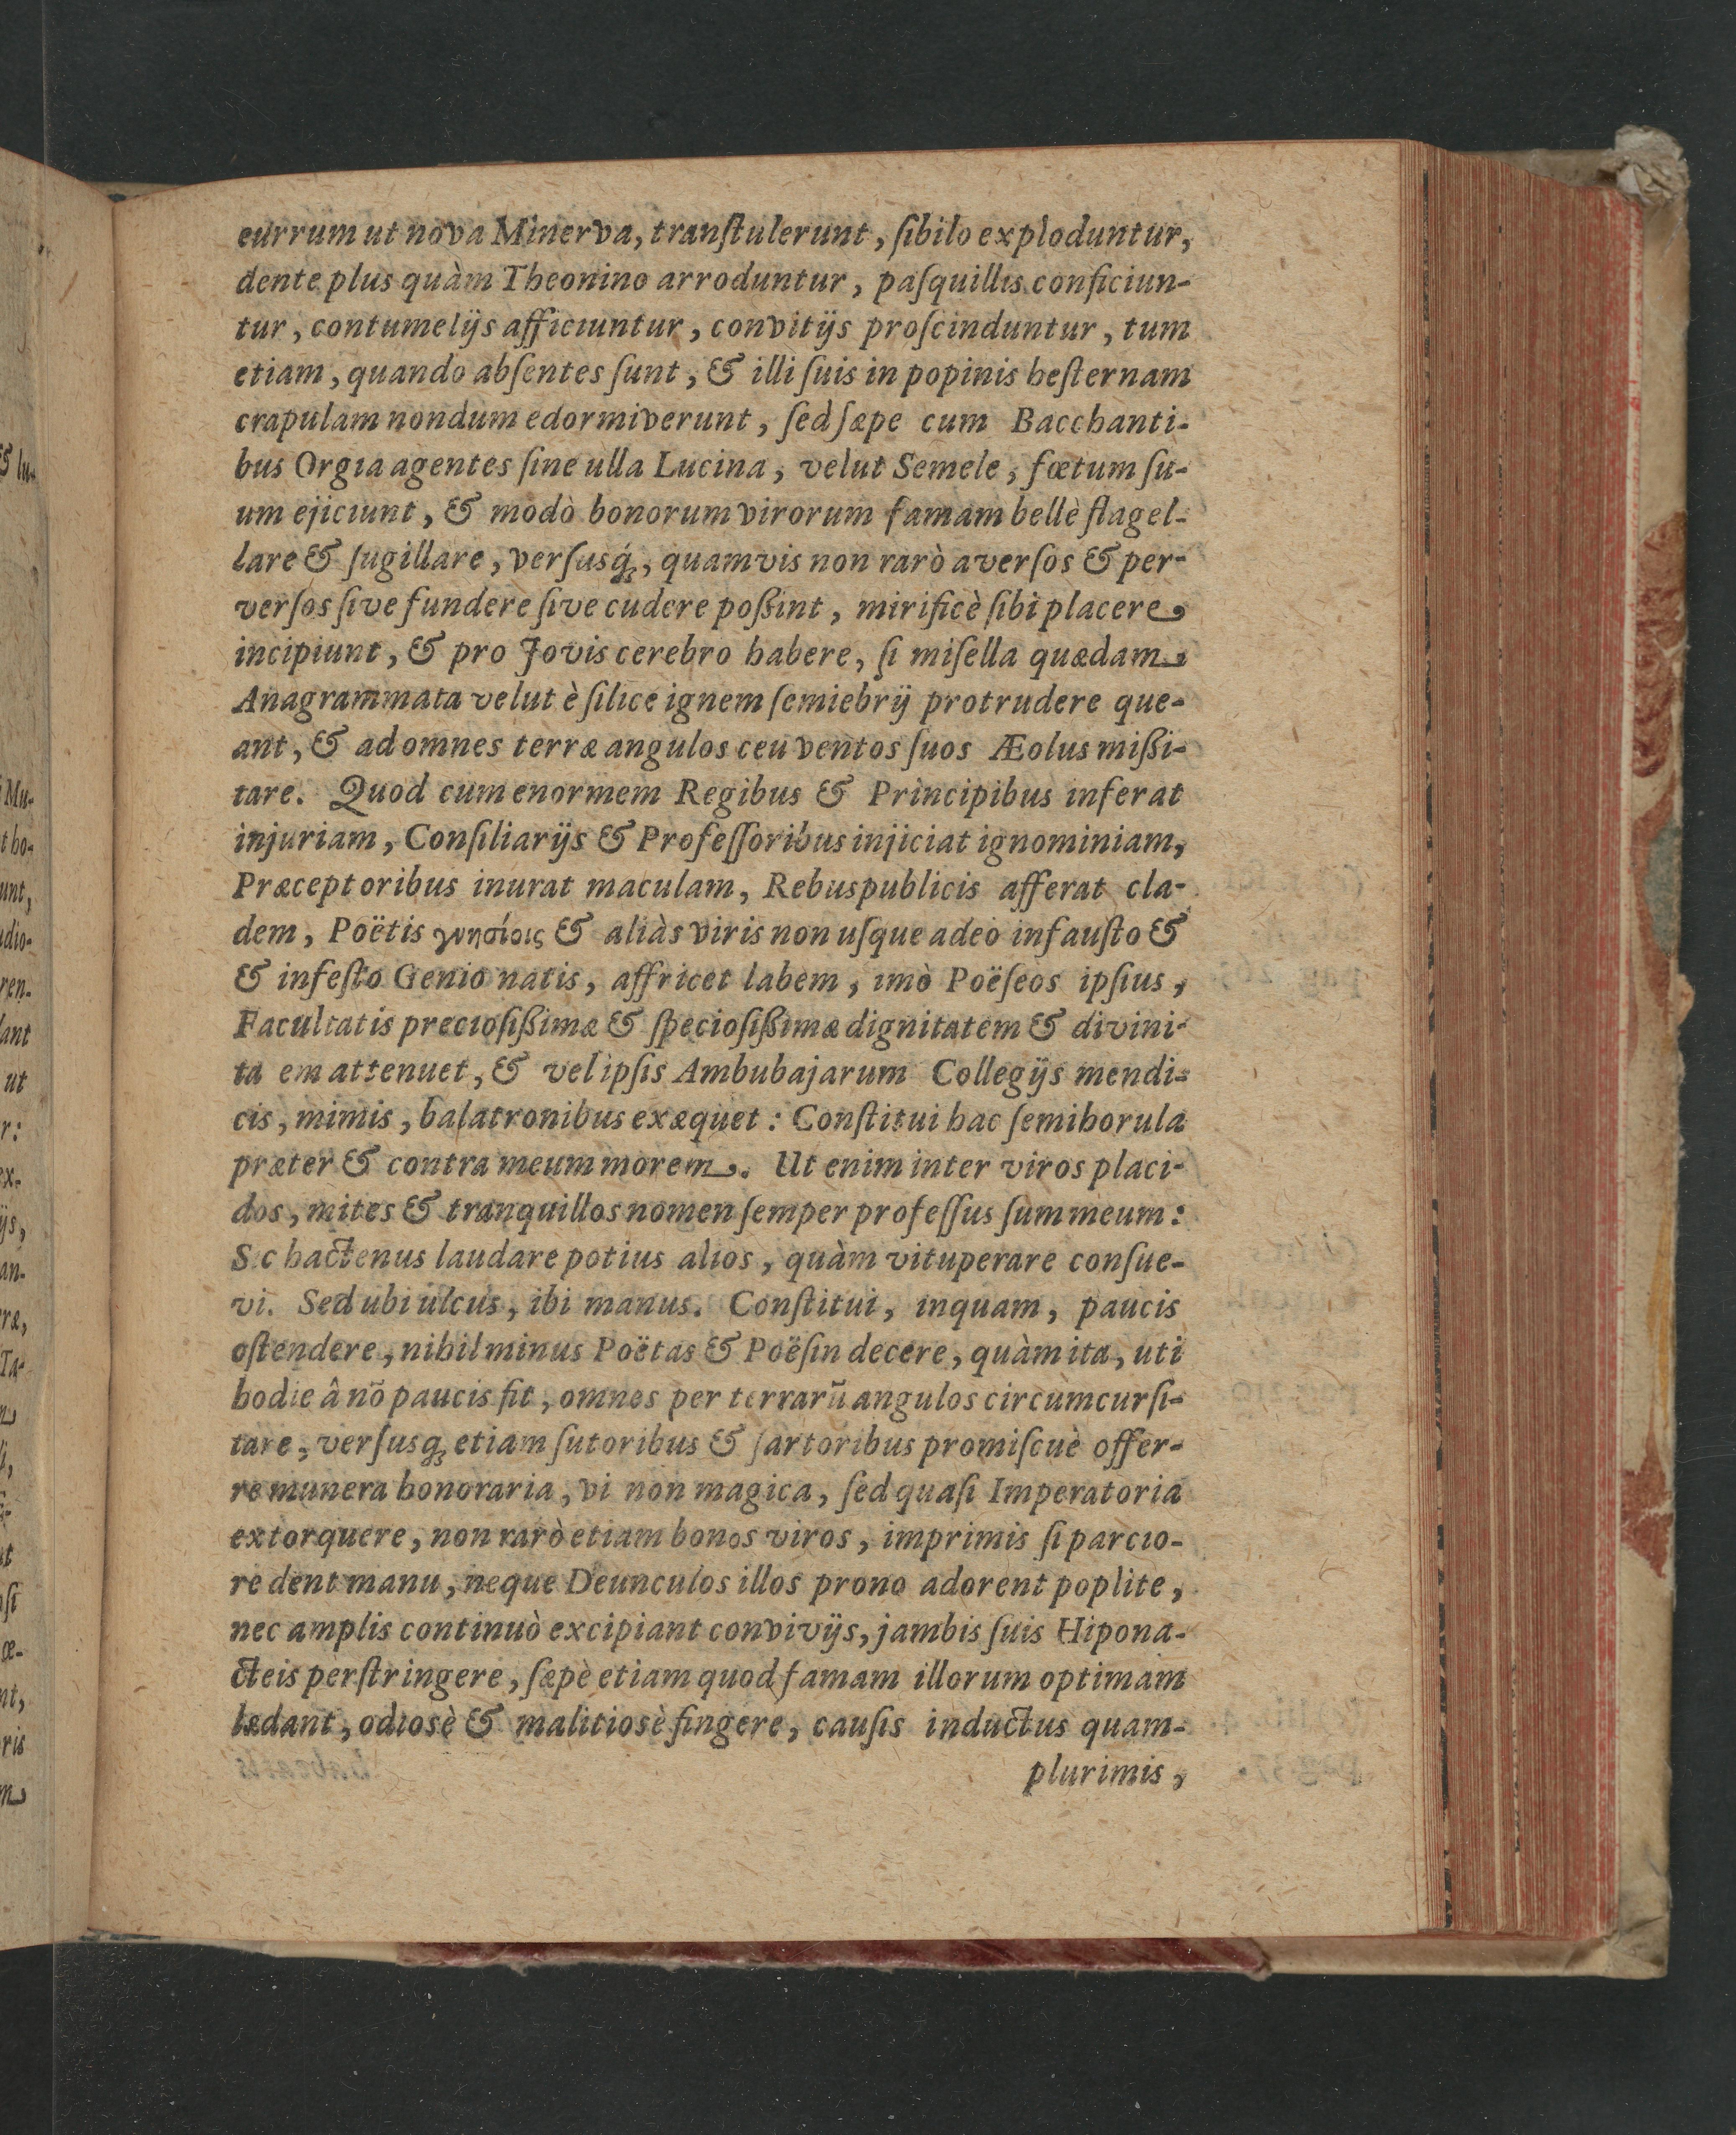 currum ut nova Minerva, tranſtulerunt, ſibilo exploduntur,
dente plus quàm Theonino arroduntur, paſquillis conficiun-
tur, contumelijs afficiuntur, convitijs proſcinduntur, tum
etiam, quando abſentes ſunt, & illi ſuis in popinis heſternam
crapulam nondum edormiverunt, ſed ſæpe cum Bacchanti-
bus Orgia agentes ſine ulla Lucina, velut Semele, fœtum ſu-
um ejiciunt, & modò bonorum virorum famam bellè flagel-
lare & ſugillare, verſusq́;, quamvis non rarò averſos & per-
verſos ſive fundere ſive cudere poßint, mirificè ſibi placere
incipiunt, & pro Jovis cerebro habere, ſi miſella quædam
Anagrammata velut è ſilice ignem ſemiebrij protrudere que-
ant, & ad omnes terræ angulos ceu ventos ſuos Æolus mißi-
tare. Quod cum enormem Regibus & Principibus inferat
injuriam, Conſiliarijs & Profeſſoribus injiciat ignominiam,
Præceptoribus inurat maculam, Rebuspublicis afferat cla-
dem, Poëtis γνησίοις & aliàs viris non uſque adeò infauſto &
& infeſto Genio natis, affricet labem, imò Poëſeos ipſius,
Facultatis precioſißimæ & ſpecioſißimæ dignitatem & divini-
ta em attenuet, & vel ipſis Ambubajarum Collegijs mendi-
cis, mimis, balatronibus exæquet: Conſtitui hac ſemihorula
præter & contra meum morem. Ut enim inter viros placi-
dos, mites & tranquillos nomen ſemper profeſſus ſum meum:
Sic hactenus laudare potius alios, quàm vituperare conſue-
vi. Sed ubi ulcus, ibi manus. Conſtitui, inquam, paucis
oſtendere, nihil minus Poëtas & Poëſin decere, quàm ita, uti
hodie â nō paucis fit, omnes per terrarū angulos circumcurſi-
tare, verſusq; etiam ſutoribus & ſartoribus promiſcuè offer-
re munera honoraria, vi non magica, ſed quaſi Imperatoria
extorquere, non rarò etiam bonos viros, imprimis ſi parcio-
re dent manu, neque Deunculos illos prono adorent poplite,
nec amplis continuò excipiant convivijs, jambis ſuis Hipona-
cteis perſtringere, ſæpè etiam quod famam illorum optimam
lædant, odiosè & malitiosè fingere, cauſis inductus quam-
plurimis,